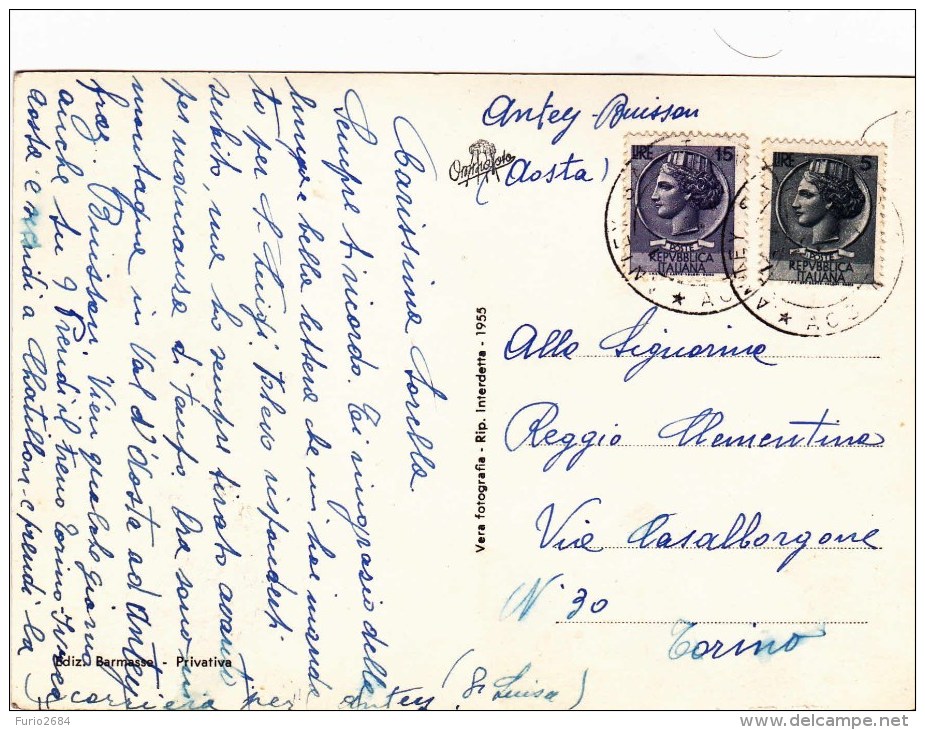 Carissima Sorella.
Sempre ti ricordo. Ti ringrazio della
lunga e bella lettera che mi hai manda
to per S. Luigi. Volevo risponderti
subito, ma ho sempre tirato avanti
per mancanza di tempo. Ora sono in
montagna in Val d'Aosta ad Antey
fraz. Buisson. Vieni qualche giorno
anche tu. Prendi il treno Torino-Ivrea
Aosta e scendi a Chatillon e prendi la
(corriera per Antey (S. Luisa)
Antey Buisson
(Aosta)
LIRE 15
POSTE
REPVBBLICA
ITALIANA
LIRE 5
POSTE
REPVBBLICA
ITALIANA
Alla Signorina
Reggio Clementina
Via Casalborgone
N° 30
Torino
Vera fotografia - Rip. Interdetta - 1955
Ediz. Barmasse - Privativa
Furio2684
delcampe.net